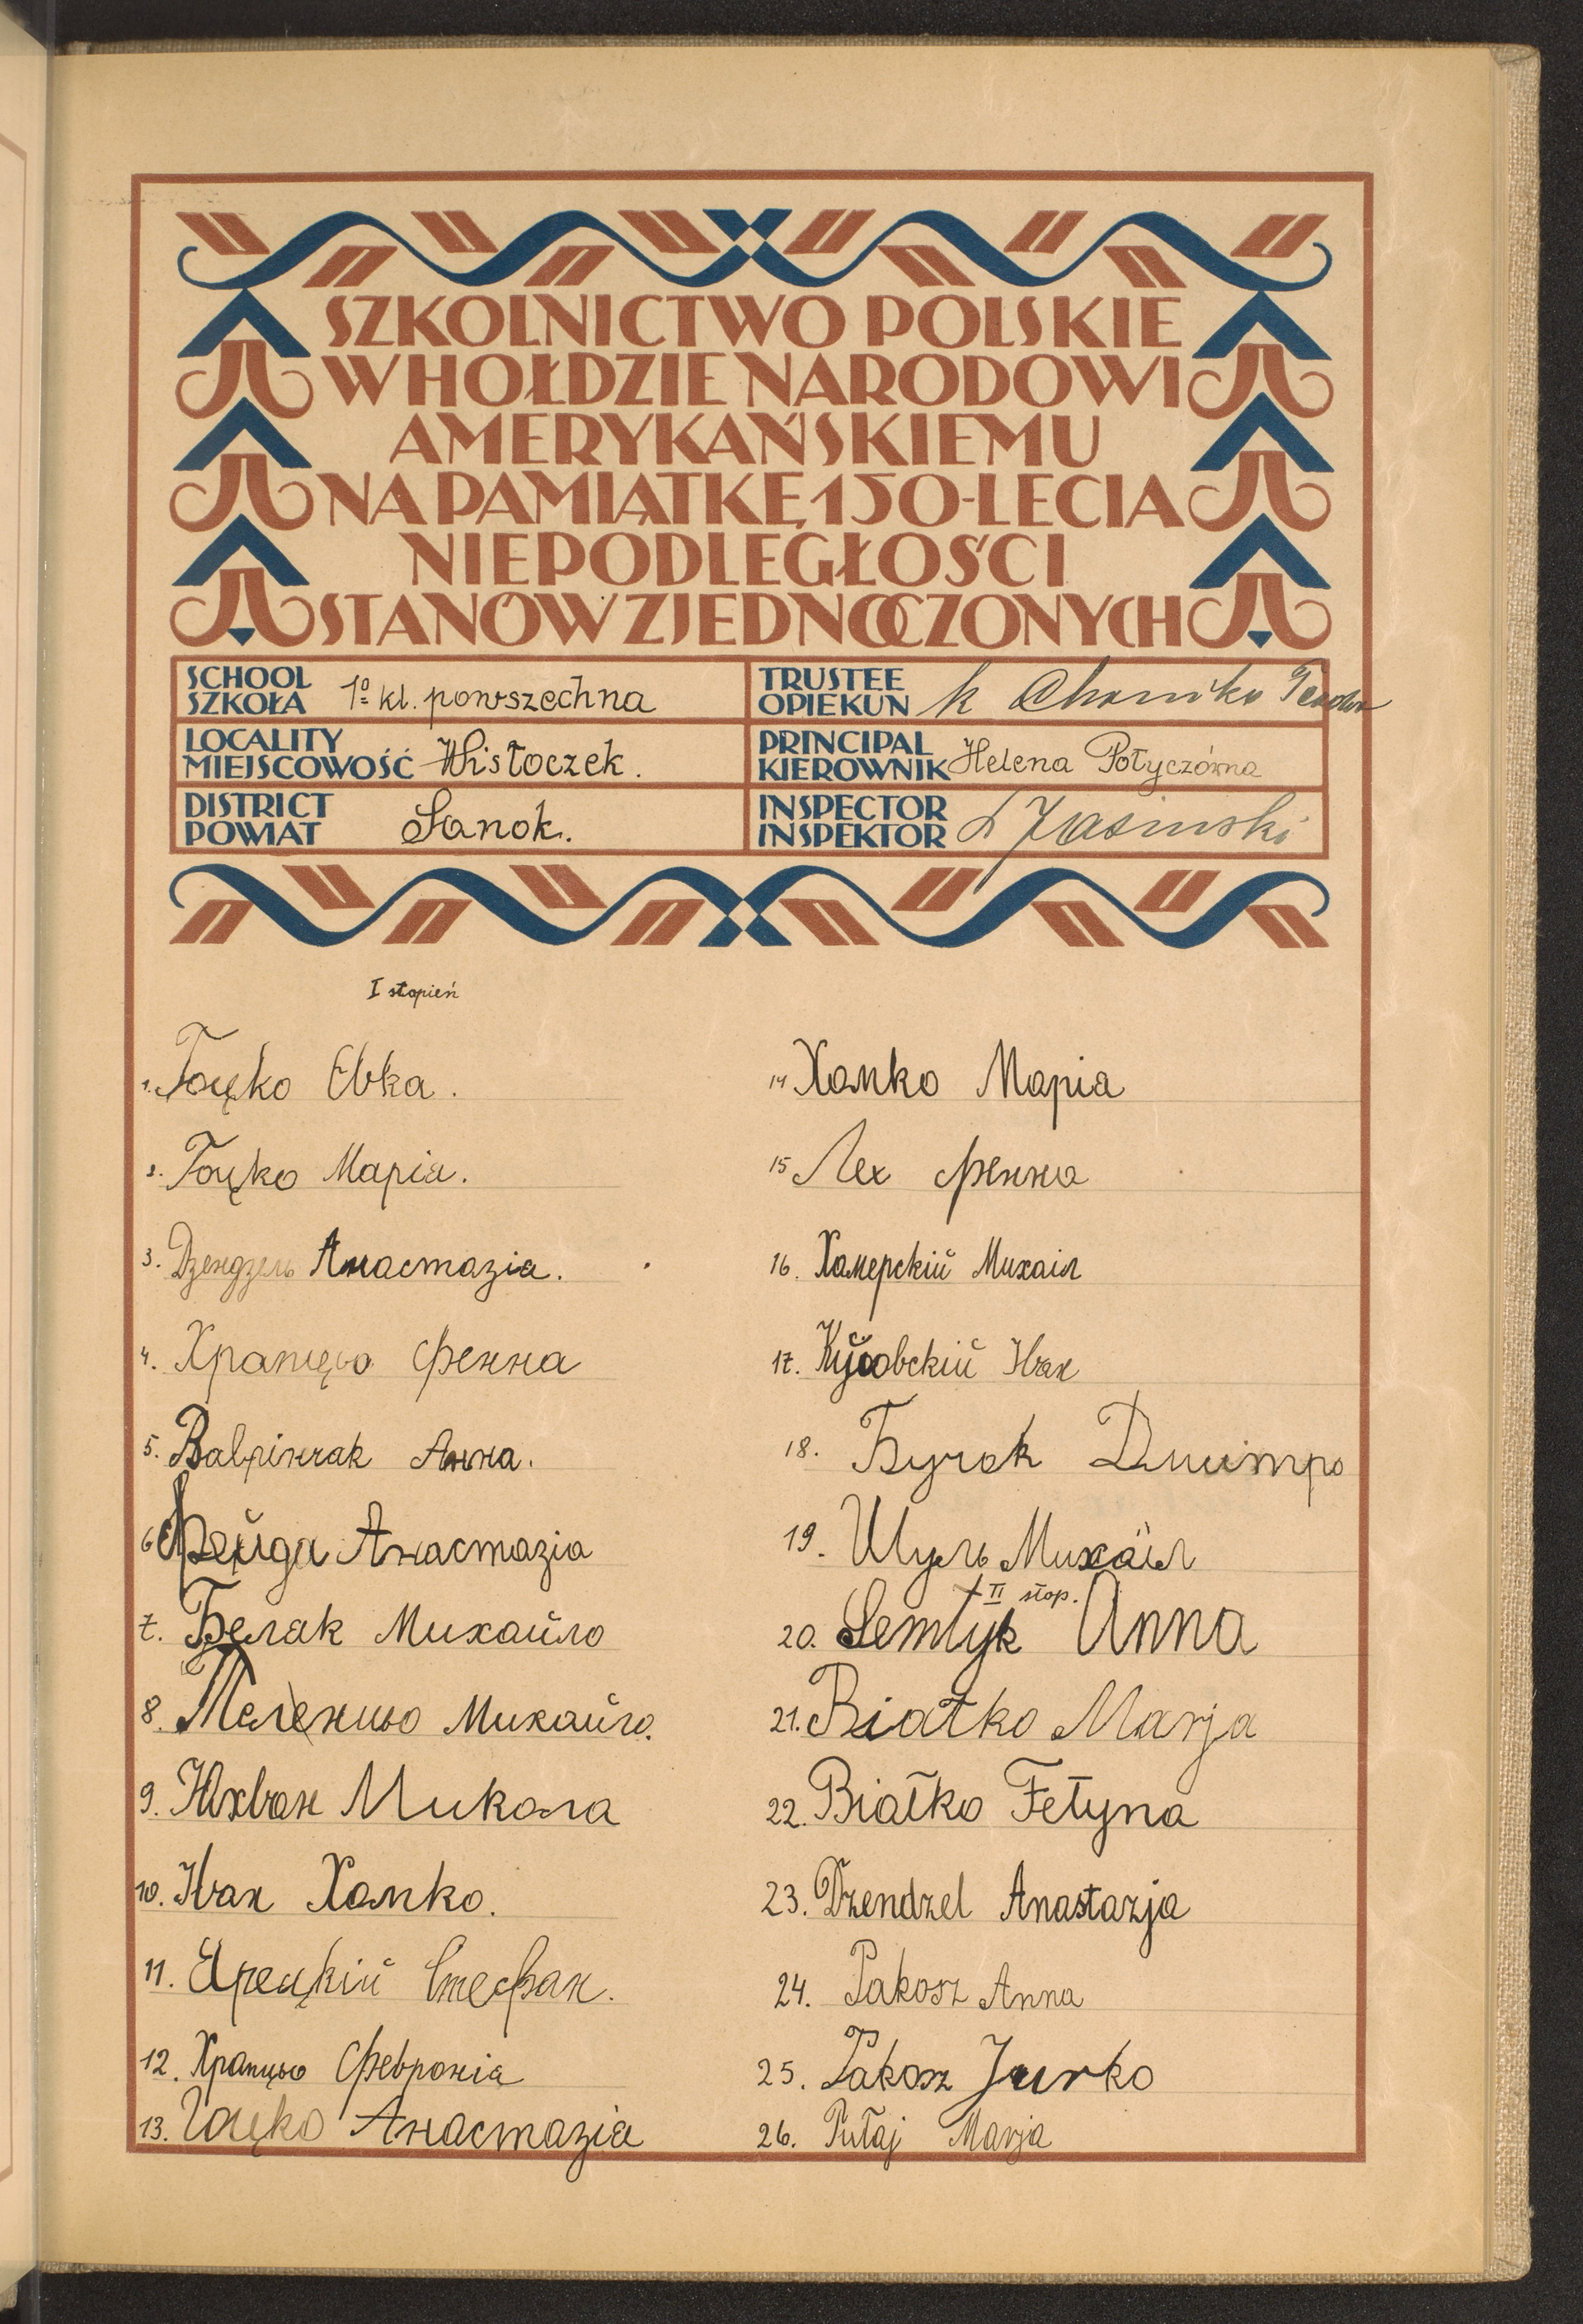 SZKOLNICTWO POLSKIE
W HOŁDZIE NARODOWI
AMERYKAŃSKIEMU
NA PAMIĄTKĘ 150-LECIA
NIEPODLEGŁOŚCI
STANÓW ZJEDNOCZONYCH
SCHOOL
SZKOŁA 1º kl. powszechna
TRUSTEE
OPIEKUN
LOCALITY
MIEJSCOWOŚĆ Wisłoczek.
PRINCIPAL
KIEROWNIK Helena Połyczówna
DISTRICT
POWIAT Sanok.
INSPECTOR
INSPEKTOR Jasiński
I stopień
1. Гоцко Евка.
2. Гоцко Марія.
3. Дзендзель Анастазія.
4. Храпцьо Фенна
5. Вавринчак Анна.
6. Фецда Анастазія
7. Белак Михайло
8. Теленцьо Михайло.
9. Юхван Микола
10. Иван Хомко.
11. Ярецкій Стефан.
12. Храпцьо Февронія
13. Гоцко Анастазія
14 Хомко Маріа
15 Лех Фенна
16. Хомерскій Михаил
17. Иван
18. Бучок Дмитро
19. Шуль Михаіл
II stop.
20. Semtyk Anna
21. Białko Marja
22. Białko Fetyna
23. Dzendzel Anastazja
24. Pakosz Anna
25. Pakosz Jurko
26. Pułaj Marja